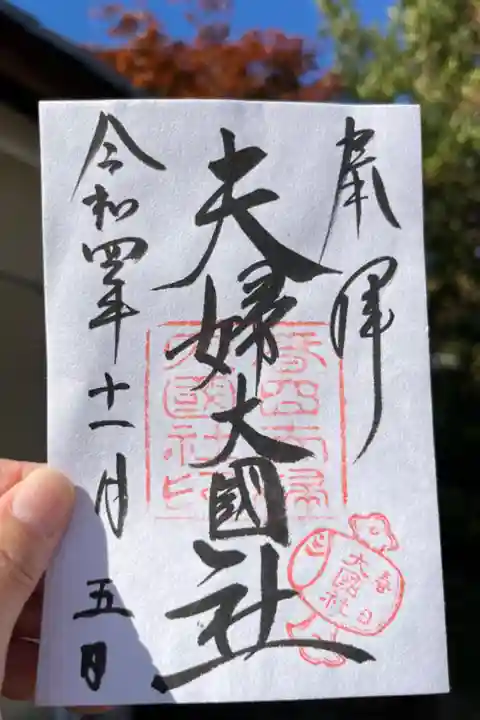 奉拝
夫婦大國社
令和四年十一月五日
春日夫婦大國社印
春日
大國社